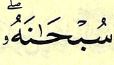 سُبْحَٰنَهُۥۖ